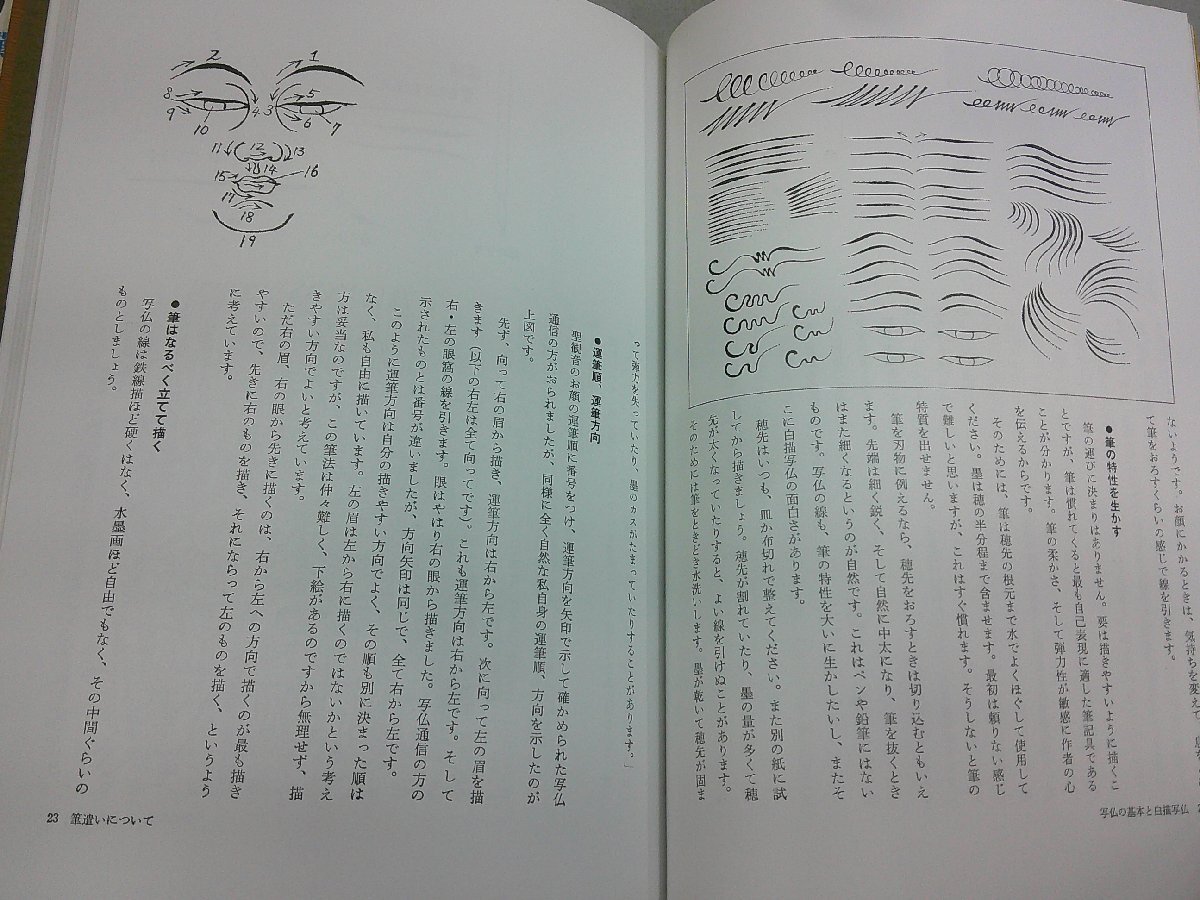 ないようです。お顔にかかるときは、気持ちを変えて、
て筆をおろすくらいの感じで線を引きます。
●筆の特性を生かす
筆の運びに決まりはありません。要は描きやすいように描くこ
とですが、筆は慣れてくると最も自己表現に適した筆記具である
ことが分かります。筆の柔かさ、そして弾力性が敏感に作者の心
を伝えるからです。
そのためには、筆は穂先の根元まで水でよくほぐして使用して
ください。墨は穂の半分程まで含ませます。最初は頼りない感じ
で難しいと思いますが、これはすぐ慣れます。そうしないと筆の
特質を出せません。
筆を刃物に例えるなら、穂先をおろすときは切り込むともいえ
ます。先端は細く鋭く、そして自然に中太になり、筆を抜くとき
はまた細くなるというのが自然です。これはペンや鉛筆にはない
ものです。写仏の線も、筆の特性を大いに生かしたいし、またそ
こに白描写仏の面白さがあります。
穂先はいつも、皿か布切れで整えてください。また別の紙に試
してから描きましょう。穂先が割れていたり、墨の量が多くて穂
先が太くなっていたりすると、よい線を引けぬことがあります。
そのためには筆をときどき水洗いします。墨が乾いて穂先が固ま
写仏の基本と白描写仏
って弾力を失っていたり、墨のカスがたまっていたりすることがあります。」
●運筆順、運筆方向
聖観音のお顔の運筆順に番号をつけ、運筆方向を矢印で示して確かめられた写仏
通信の方がおられましたが、同様に全く自然な私自身の運筆順、方向を示したのが
上図です。
先ず、向って右の眉から描き、運筆方向は右から左です。次に向って左の眉を描
きます（以下の右左は全て向ってです）。これも運筆方向は右から左です。そして
右・左の眼窩の線を引きます。眼はやはり右の眼から描きました。写仏通信の方の
示されたものとは番号が違いましたが、方向矢印は同じで、全て右から左です。
このように運筆方向は自分の描きやすい方向でよく、その順も別に決まった順は
なく、私も自由に描いています。左の眉は左から右に描くのではないかという考え
方は妥当なのですが、この筆法は仲々難しく、下絵があるのですから無理せず、描
きやすい方向でよいと考えています。
ただ右の眉、右の眼から先きに描くのは、右から左への方向で描くのが最も描き
やすいので、先きに右のものを描き、それにならって左のものを描く、というよう
に考えています。
●筆はなるべく立てて描く
写仏の線は鉄線描ほど硬くはなく、水墨画ほど自由でもなく、その中間ぐらいの
ものとしましょう。
2
1
8
9
10
4
3
5
6
7
11
12
13
14
15
16
17
18
19
23 筆遣いについて